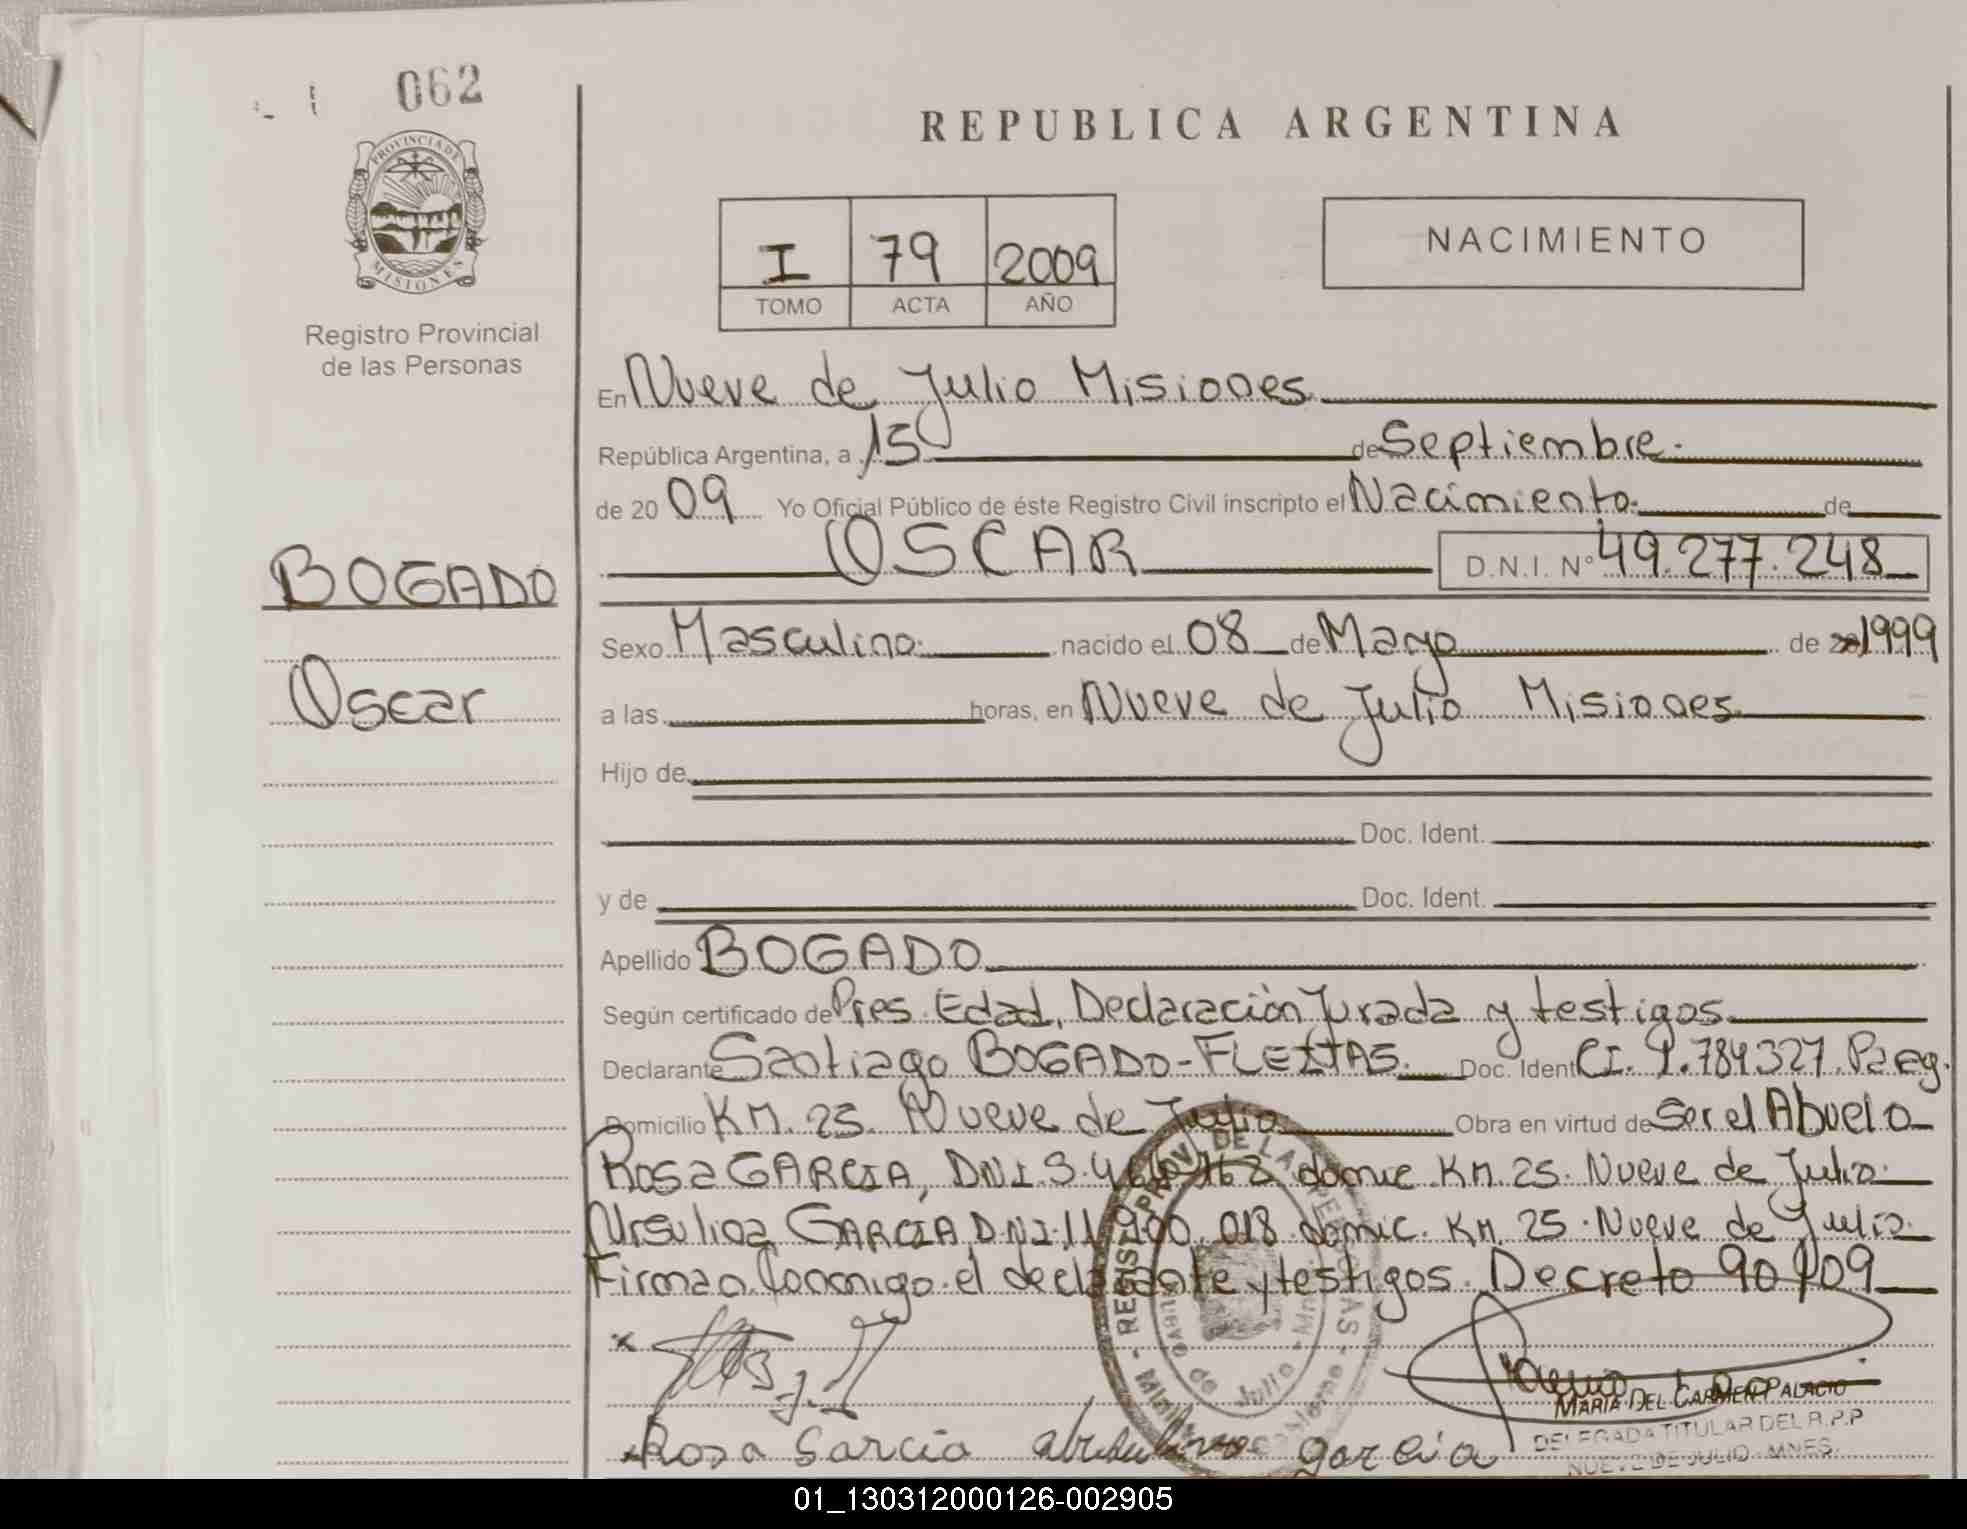 062
PROVINCIA DE
MISIONES
Registro Provincial
de las Personas
REPUBLICA ARGENTINA
I 79 2009
TOMO ACTA AÑO
NACIMIENTO
En Nueve de Julio Misiones
República Argentina, a 15 de Septiembre.
de 20 09 Yo Oficial Público de éste Registro Civil inscripto el Nacimiento de
OSCAR D.N.I. N° 49.277.248
BOGADO
Oscar
Sexo Masculino nacido el 08 de Mayo de 1999
a las horas, en Nueve de Julio Misiones
Hijo de
Doc. Ident.
y de Doc. Ident.
Apellido BOGADO
Según certificado de Pres. Edad, Declaración Jurada y testigos
Declarante Santiago BOGADO-FLEITAS. Doc. Ident CI. 1.784327. Parag.
Domicilio KM. 25. Nueve de Julio Obra en virtud de Ser el Abuelo
Rosa GARCIA, DNI. domic. KM. 25. Nueve de Julio.
Ursulina GARCÍA DNI. 11.900.018 domic. KM. 25. Nueve de Julio
Firman Conmigo el declarante y testigos. Decreto 90/09
REGIST. PROV. DE LAS PERSONAS
Nueve de Julio - Mnes
MARIA DEL CARMEN PALACIO
DELEGADA TITULAR DEL R.P.P
NUEVE DE JULIO - MNES.
Rosa Garcia garcia
01_130312000126-002905